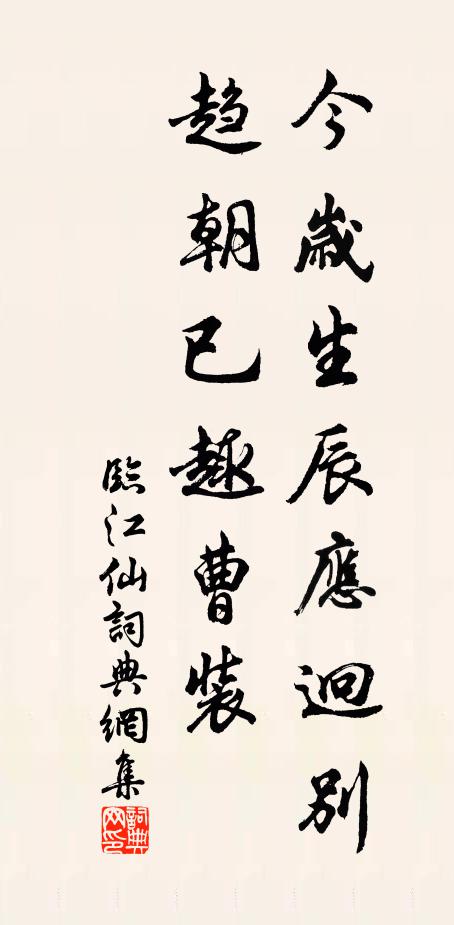 今歲生辰應迥別
趋朝已趣曹裝
臨江仙詞典網集
詞典網印